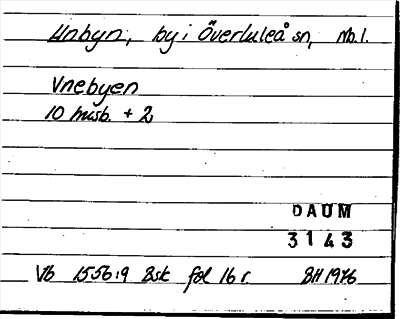 Unbyn, by i Överluleå sn, Nb.l.
Vnebyen
10 husb. + 2
DAUM
3143
Vb 1556:9 Bsk fol 16 r. BH 1976